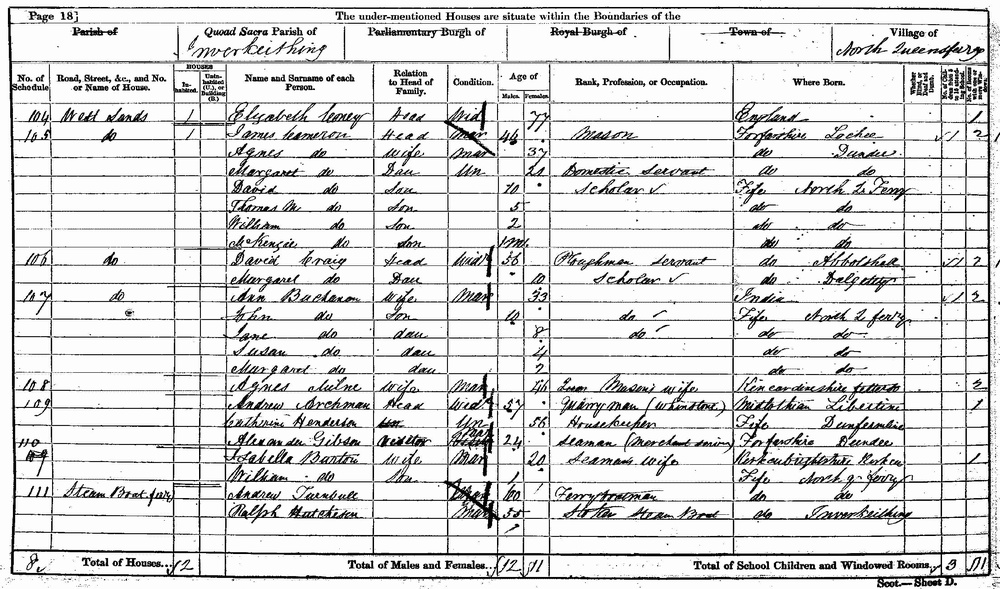 Page 18] The under-mentioned Houses are situate within the Boundaries of the
Parish of Quoad Sacra Parish of Parliamentary Burgh of Royal Burgh of Town of Village of
Inverkeithing North Queensferry
No. of Schedule Road, Street, &c., and No. or Name of House. HOUSES Inhabited. Uninhabited (U.), or Building (B.) Name and Surname of each Person. Relation to Head of Family. Condition. Age of Males. Females. Rank, Profession, or Occupation. Where Born.
104 West Sands 1 Elizabeth Head Wid 77 England 1
105 do 1 James Cameron Head Mar 46 Mason Forfarshire Lochee 1 2
Agnes do Wife Mar 37 do Dundee
Margaret do Dau Un 20 Domestic Servant do do
David do Son 10 Scholar Fife North Q Ferry
Thomas M do Son 5 do do
William do Son 2 do do
McKenzie do Son do do
106 do David Craig Head Widr 56 Ploughman Servant do Abbotshall 1 2
Margaret do Dau 10 Scholar do Dalgety
107 do Ann Buchanan Wife Mar 33 India 1 2
John do Son 10 do Fife North Q ferry
Jane do dau 8 do do do
Susan do dau 4 do do
Margaret do dau 2 do do
108 Agnes Milne Wife Mar 46 Mason's wife Kincardineshire 2
109 Andrew Archman Head Widr 57 Quarryman (Whinstone) Midlothian Libertine 1
Catherine Henderson Un 56 Housekeeper Fife Dunfermline
110 Alexander Gibson Visitor 24 Seaman (Merchant service) Forfarshire Dundee
109 Isabella Burton Wife Mar 20 Seaman's wife Kirkcudbrightshire 1
William do Son 1 Fife North Q ferry
111 Steam Boat ferry Andrew Turnbull Mar 60 Ferryboatman do do
Ralph Hutcheson Mar 35 Stoker Steam Boat do Inverkeithing
8 Total of Houses... 2 Total of Males and Females... 12 11 Total of School Children and Windowed Rooms, 3 11
Scot.—Sheet D.